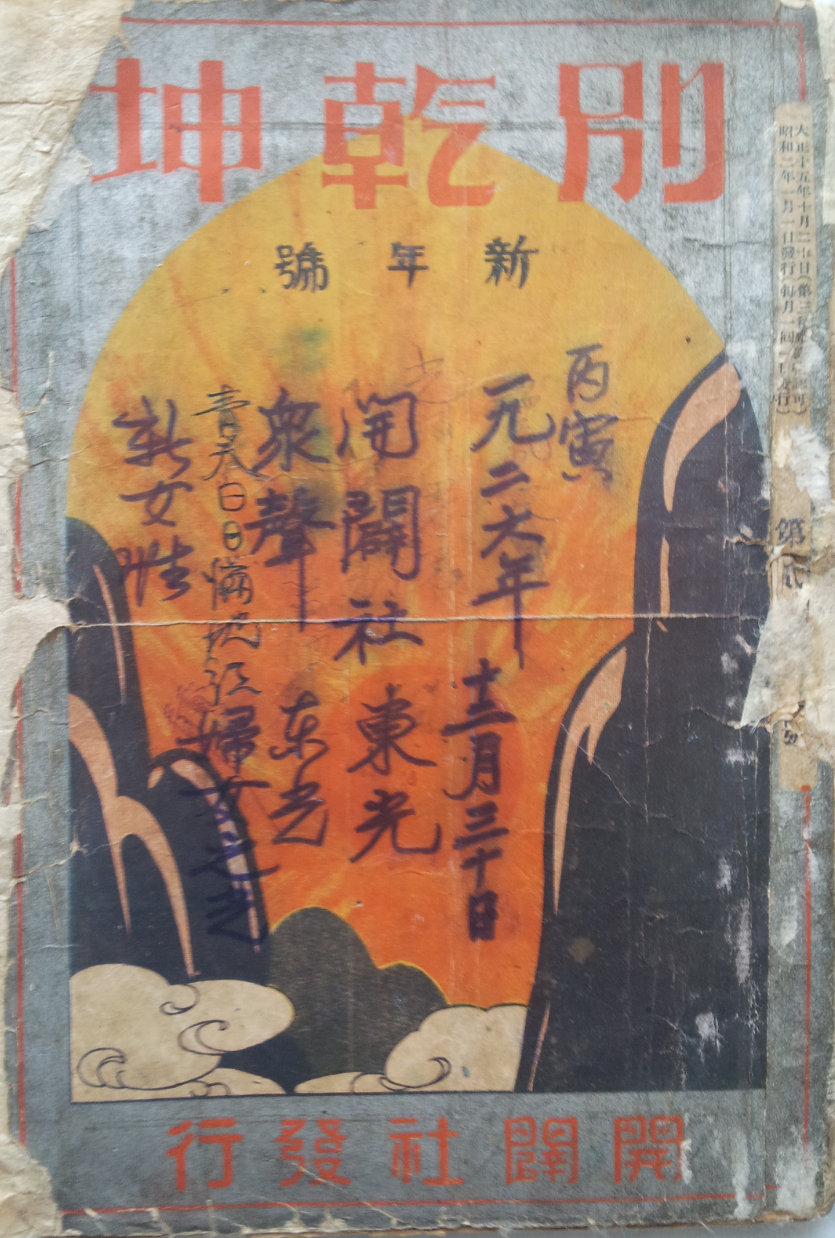 別乾坤
新年號
大正十五年十月二十日(第三種郵便物認可)
昭和二年一月一日發行(每月一回一日發行)
第
丙寅
一九二六年 十二月三十日
開闢社 東光
衆聲 东光
青天白日
婦女之
新女性
開闢社發行